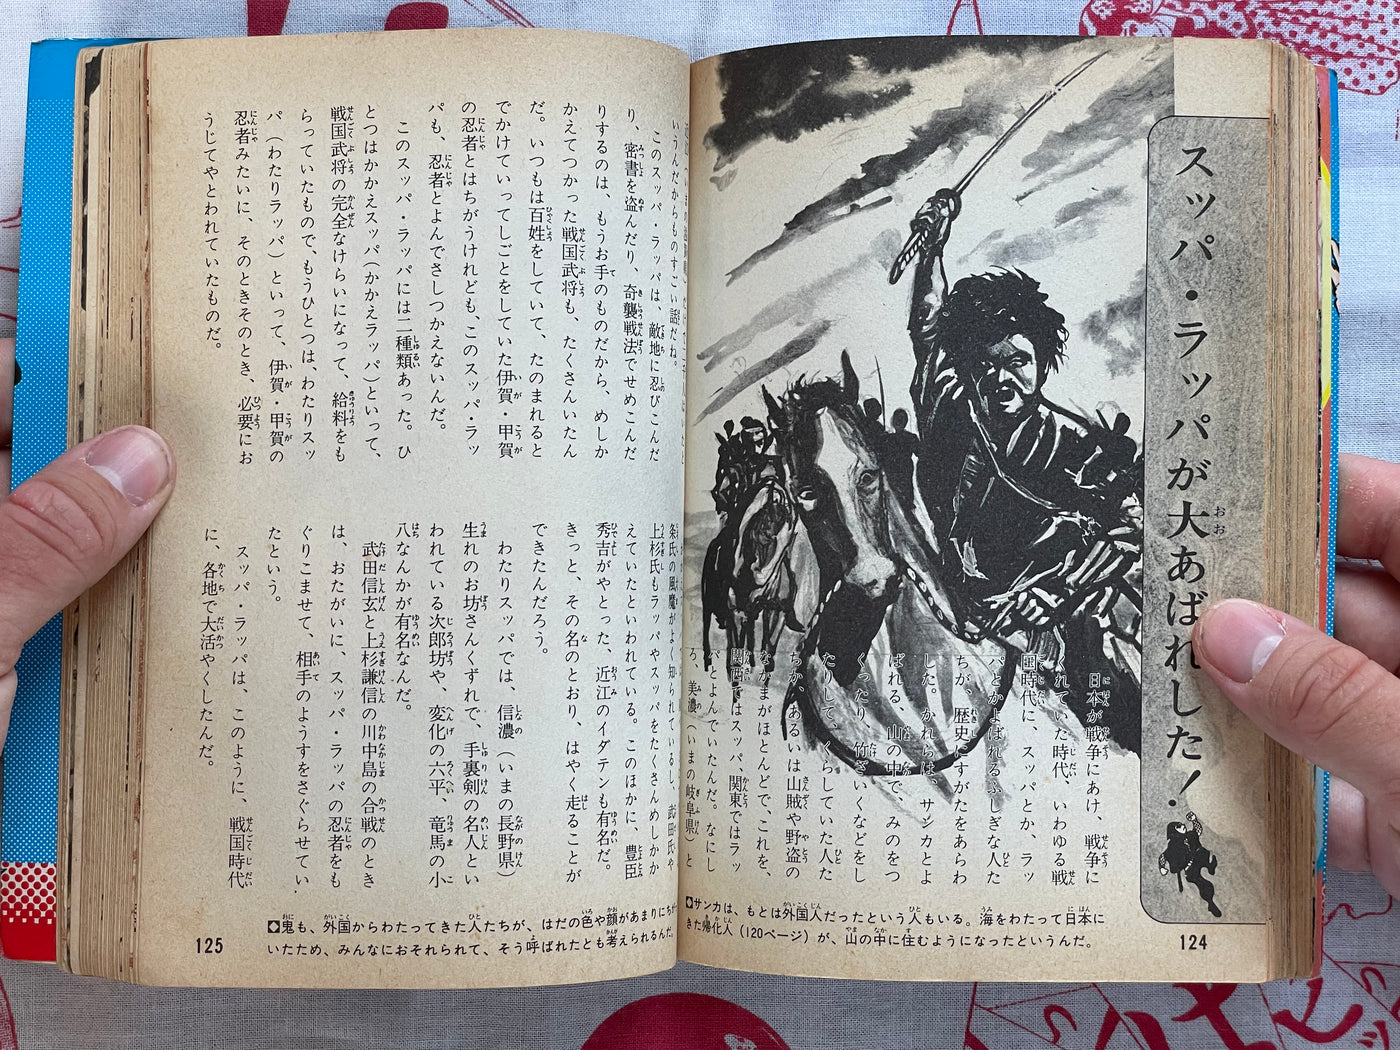 スッパ・ラッパが大あばれした!
日本が戦争にあけ、戦争に
くれていた時代、いわゆる戦
国時代に、スッパとか、ラッ
パとかよばれるふしぎな人た
ちが、歴史にすがたをあらわ
した。かれらは、サンカとよ
ばれる、山の中で、みのをつ
くったり、竹ざいくなどをし
たりして、くらしていた人た
ちか、あるいは山賊や野盗の
なかまがほとんどで、これを、
関西ではスッパ、関東ではラッ
パとよんでいたんだ。なにし
ろ、美濃(いまの岐阜県)と
いうんだからものすごい話だね。
このスッパ・ラッパは、敵地に忍びこんだ
り、密書を盗んだり、奇襲戦法でせめこんだ
りするのは、もうお手のものだから、めしか
かえてつかった戦国武将も、たくさんいたん
だ。いつもは百姓をしていて、たのまれると
でかけていってしごとをしていた伊賀・甲賀
の忍者とはちがうけれども、このスッパ・ラッ
パも、忍者とよんでさしつかえないんだ。
このスッパ・ラッパには二種類あった。ひ
とつはかかえスッパ(かかえラッパ)といって、
戦国武将の完全なけらいになって、給料をも
らっていたもので、もうひとつは、わたりスッ
パ(わたりラッパ)といって、伊賀・甲賀の
忍者みたいに、そのときそのとき、必要にお
うじてやとわれていたものだ。
条氏の風魔がよく知られているし、武田氏や
上杉氏もラッパやスッパをたくさんめしかか
えていたといわれている。このほかに、豊臣
秀吉がやとった、近江のイダテンも有名だ。
きっと、その名のとおり、はやく走ることが
できたんだろう。
わたりスッパでは、信濃(いまの長野県)
生れのお坊さんくずれで、手裏剣の名人とい
われている次郎坊や、変化の六平、竜馬の小
八なんかが有名なんだ。
武田信玄と上杉謙信の川中島の合戦のとき
は、おたがいに、スッパ・ラッパの忍者をも
ぐりこませて、相手のようすをさぐらせてい
たという。
スッパ・ラッパは、このように、戦国時代
に、各地で大活やくしたんだ。
◘サンカは、もとは外国人だったという人もいる。海をわたって日本に
きた帰化人(120ページ)が、山の中に住むようになったというんだ。
124
◘鬼も、外国からわたってきた人たちが、はだの色や顔があまりにちが
いたため、みんなにおそれられて、そう呼ばれたとも考えられるんだ。
125